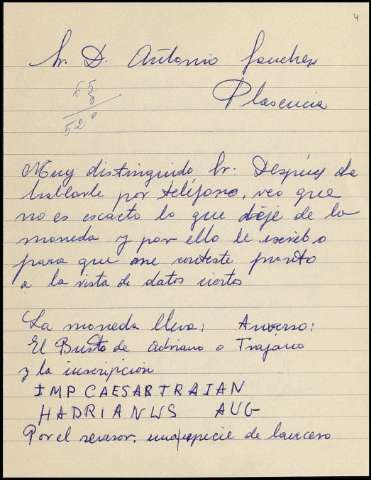 4
Sr. D. Antonio Sanchez
Plasencia
Muy distinguido Sr. Despúes de
hablarle por teléfono, veo que
no es esacto lo que dije de la
moneda y por ello le escribo
para que me conteste pronto
a la vista de datos ciertos
La moneda lleva: Anverso:
El Busto de Adriano o Trajano
y la inscripcion
IMP CAESAR TRAIAN
HADRIANWS AUG
Por el reverso, una especie de